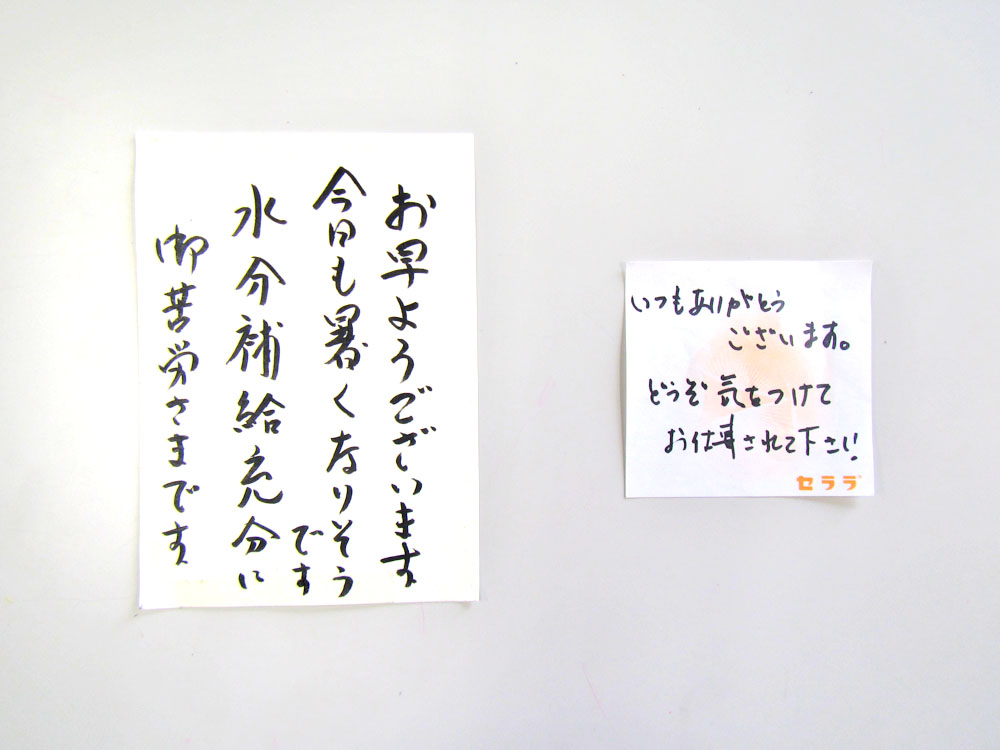 お早ようございます
今日も暑くなりそう
です
水分補給充分に
御苦労さまです
いつもありがとう
ございます。
どうぞ気をつけて
お仕事されて下さい!
セララ